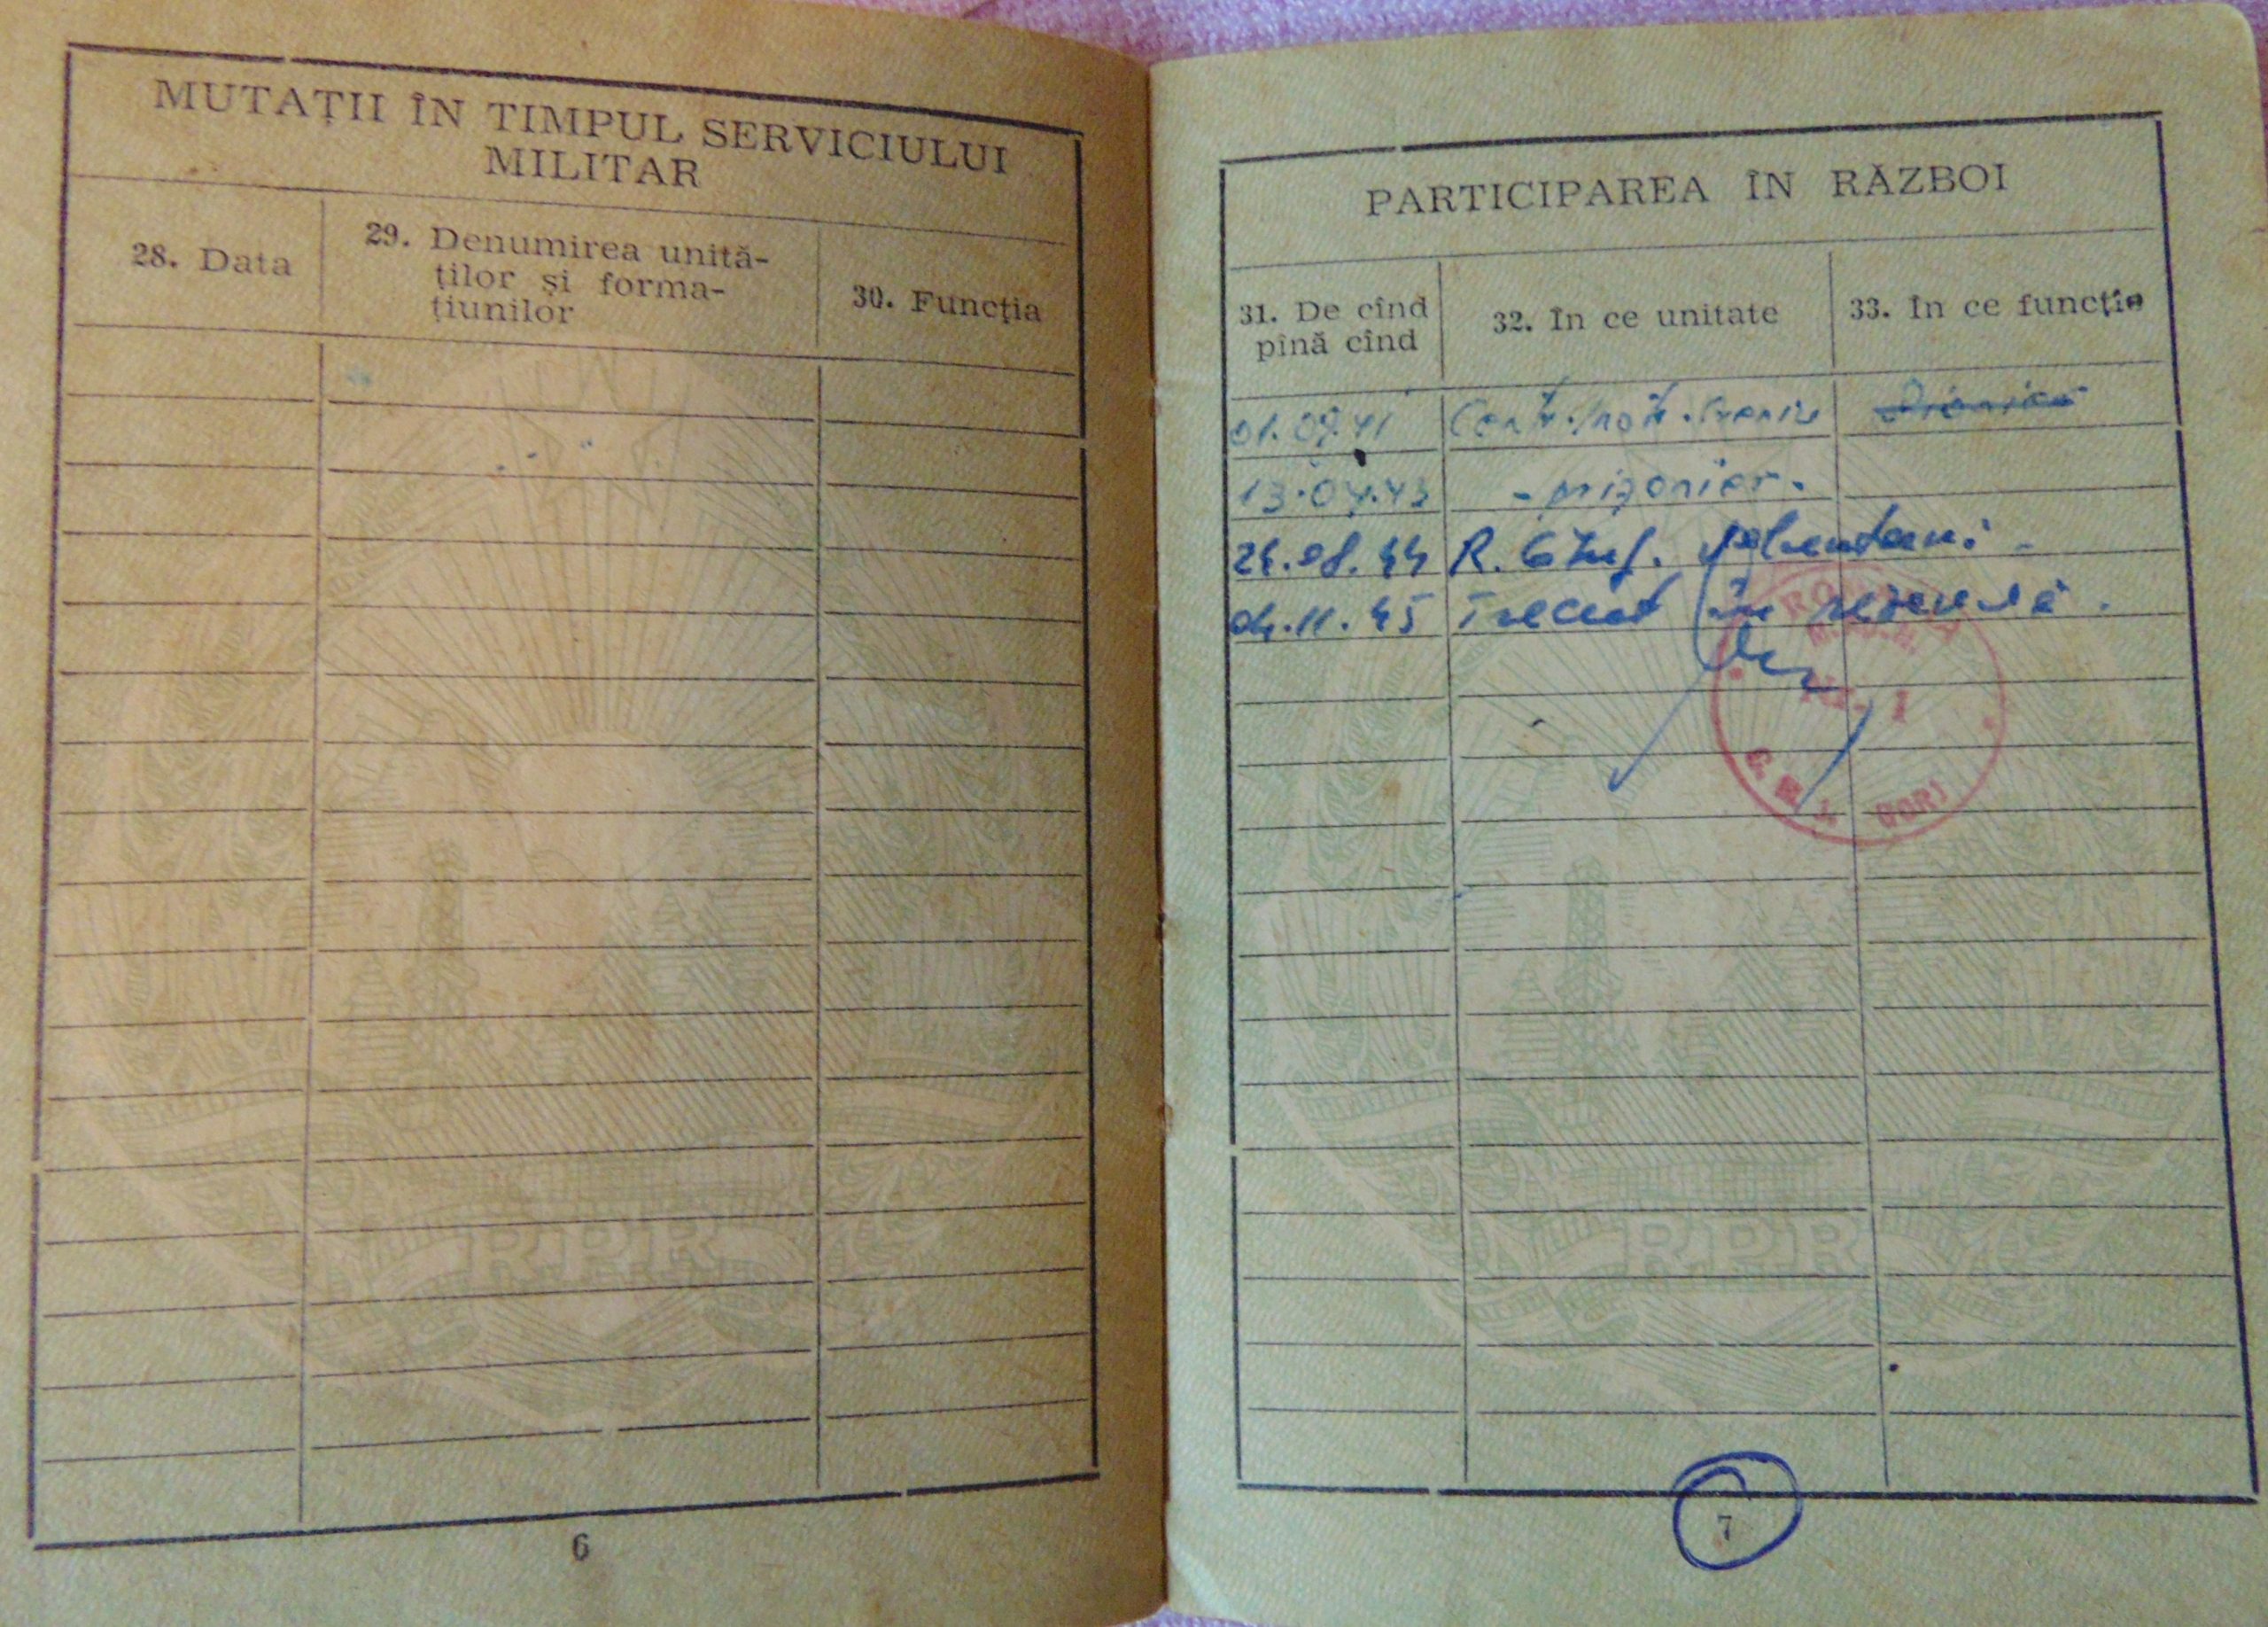 MUTAȚII ÎN TIMPUL SERVICIULUI
MILITAR
28. Data
29. Denumirea unită-
ților și forma-
țiunilor
30. Funcția
RPR
6
PARTICIPAREA ÎN RĂZBOI
31. De cînd
pînă cînd
32. În ce unitate
33. În ce funcție
01.07.41
13.04.43 - prizonier.
24.08.44 R. 6 Inf.
04.11.45 Trecut în rezervă.
ROMÂNIA
GORJ
RPR
7